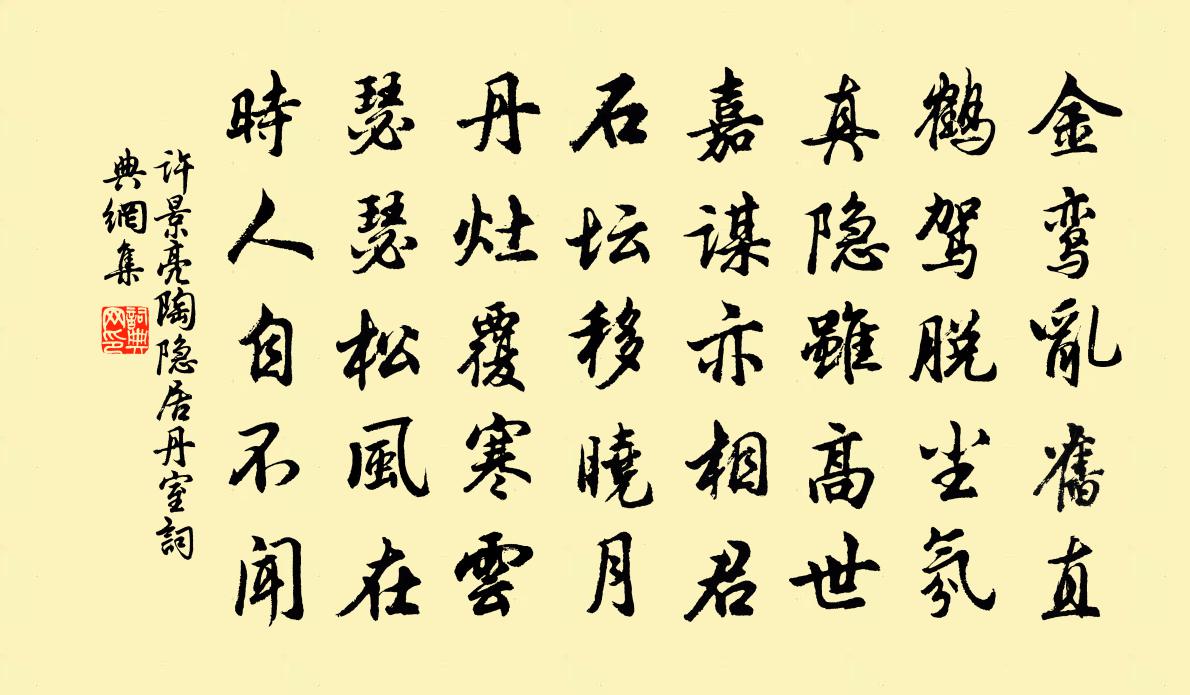 金鸾亂舊直
鶴驾脱尘氛
真隐雖高世
嘉谋亦相君
石坛移曉月
丹灶覆寒雲
瑟瑟松風在
時人自不闻
许景亮陶隐居丹室詞
典網集
詞典
网印